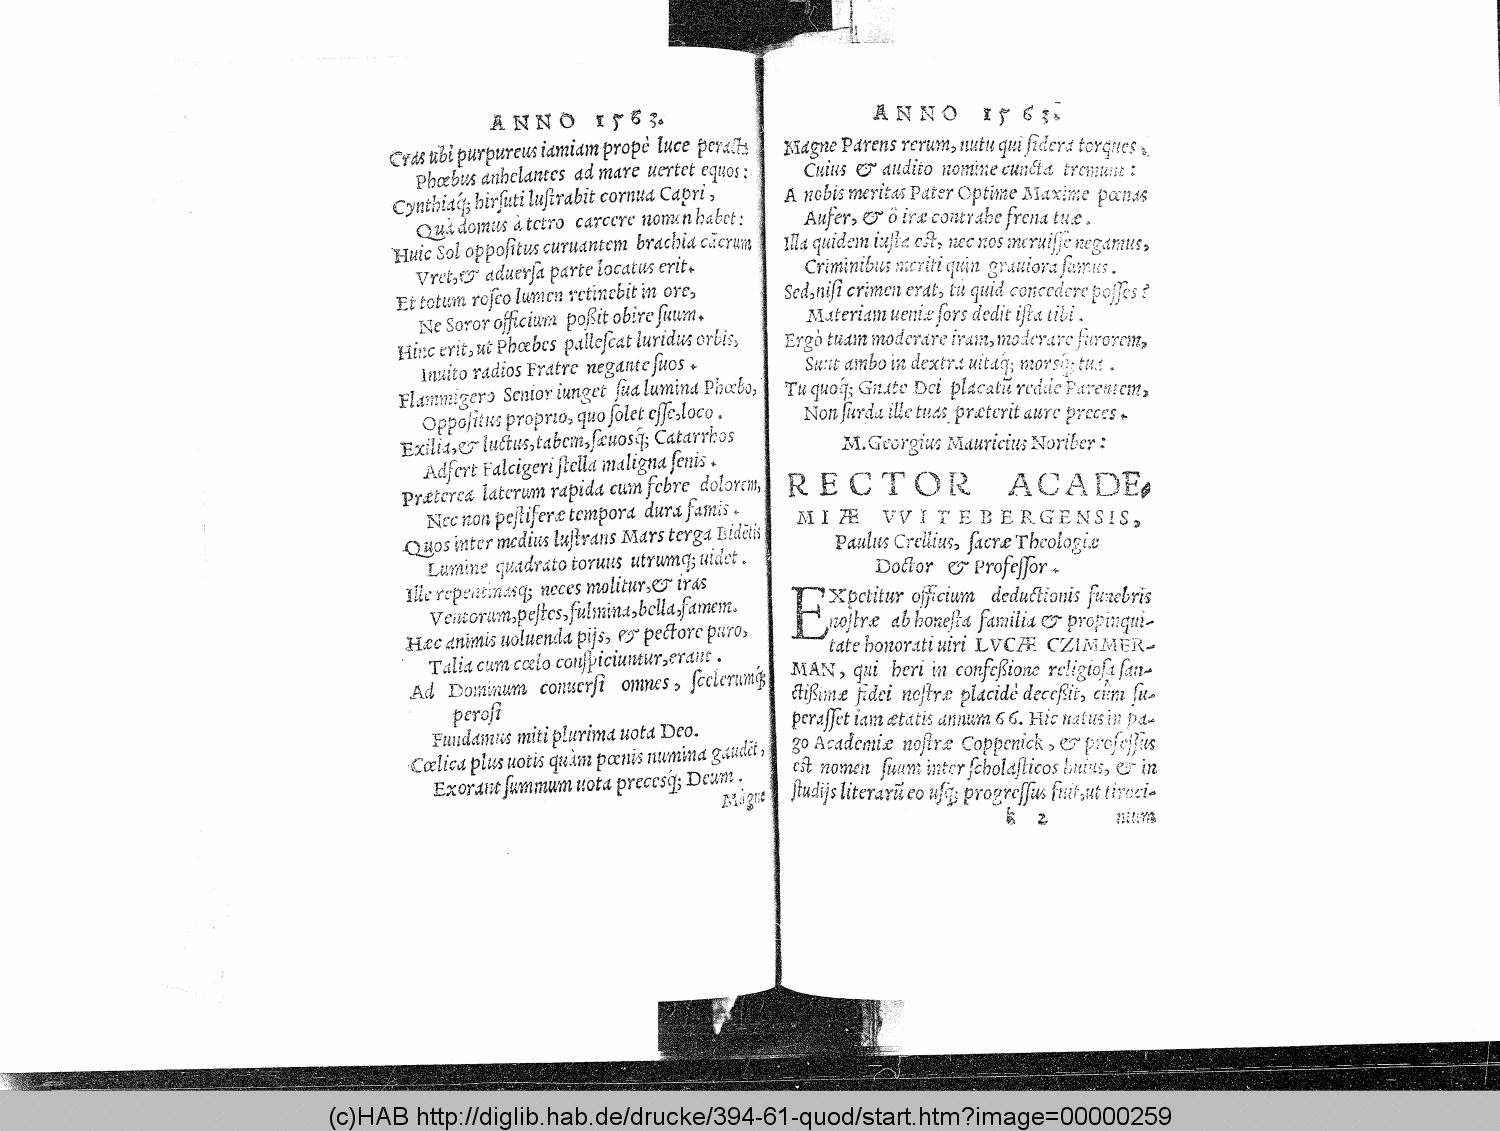 ANNO 1563.
Cras ubi purpureus iamiam propè luce peracta
Phœbus anhelantes ad mare uertet equos:
Cynthiaq́; hirsuti lustrabit cornua Capri,
Quà domus à tetro carcere nomen habet:
Huic Sol oppositus curuantem brachia cācrum
Vret, & aduersa parte locatus erit.
Et totum roseo lumen retinebit in ore,
Ne Soror officium poßit obire suum.
Hinc erit, ut Phœbes pallescat luridus orbis,
Inuito radios Fratre negante suos.
Flammigero Senior iunget sua lumina Phœbo,
Oppositus proprio, quo solet esse, loco.
Exilia, & luctus, tabem, sæuosq́; Catarrhos
Adfert Falcigeri stella maligna senis.
Præterea laterum rapida cum febre dolorem,
Nec non pestiferæ tempora dura famis.
Quos inter medius lustrans Mars terga Bidētis
Lumine quadrato toruus utrumq; uidet.
Ille repentinasq; neces molitur, & iras
Ventorum, pestes, fulmina, bella, famem.
Hæc animis uoluenda pijs, & pectore puro,
Talia cum cœlo conspiciuntur, erant.
Ad Dominum conuersi omnes, scelerumq́;
perosi
Fundamus miti plurima uota Deo.
Cœlica plus uotis quàm pœnis numina gaudēt,
Exorant summum uota precesq́; Deum.
Magne
ANNO 1563.
Magne Parens rerum, nutu qui sidera torques,
Cuius & audito nomine cuncta tremunt:
A nobis meritas Pater Optime Maxime pœnas
Aufer, & ô iræ contrahe frena tuæ.
Illa quidem iusta est, nec nos meruisse negamus,
Criminibus meriti quin grauiora sumus.
Sed, nisi crimen erat, tu quid concedere posses?
Materiam ueniæ fors dedit ista tibi.
Ergò tuam moderare iram, moderare furorem,
Sunt ambo in dextra uitaq́; morsq́; tua.
Tu quoq́; Gnate Dei placatū redde Parentem,
Non surda ille tuas præterit aure preces.
M. Georgius Mauricius Noriber:
RECTOR ACADE-
MIÆ VVITEBERGENSIS,
Paulus Crellius, sacræ Theologiæ
Doctor & Professor.
EXpetitur officium deductionis funebris
nostræ ab honesta familia & propinqui-
tate honorati uiri LVCÆ CZIMMER-
MAN, qui heri in confeßione religiosa san-
ctißimæ fidei nostræ placidè deceßit, cùm su-
perasset iam ætatis annum 66. Hic natus in pa-
go Academiæ nostræ Coppenick, & professus
est nomen suum inter scholasticos huius, & in
studijs literarū eo usq́; progressus fuit, ut tiroci-
k 2 nium
(c)HAB http://diglib.hab.de/drucke/394-61-quod/start.htm?image=00000259